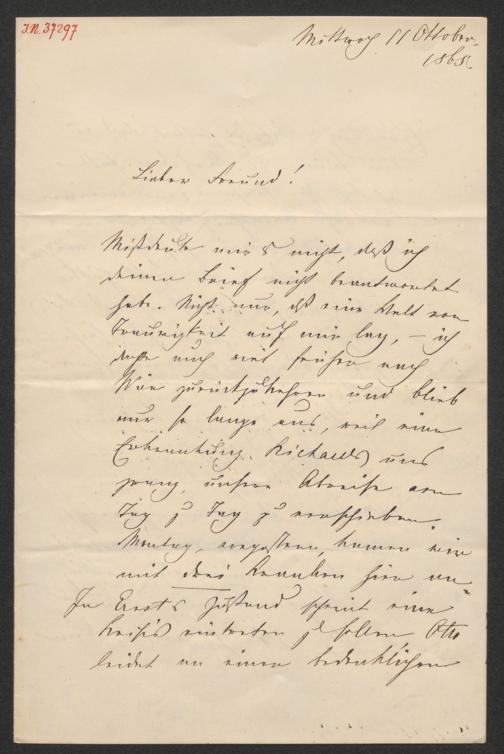 I.N. 37297
Mittwoch 11 Oktober,
1865.
Lieber Freund!
Mißdeute mir's nicht, daß ich
deinen Brief nicht beantwortet
habe. Nicht nur, daß eine Welt von
Traurigkeit auf mir lag, – ich
dachte auch viel früher nach
Wien zurückzukehren und blieb
nur so lange aus, weil eine
Erkrankung Richards uns
zwang, unsere Abreise von
Tag zu Tag zu verschieben.
Montag, vorgestern, kamen wir
mit drei Kranken hier an.
In Ernsts Zustand scheint eine
Krisis eintreten zu sollen, Otto
leidet an einem bedenklichen